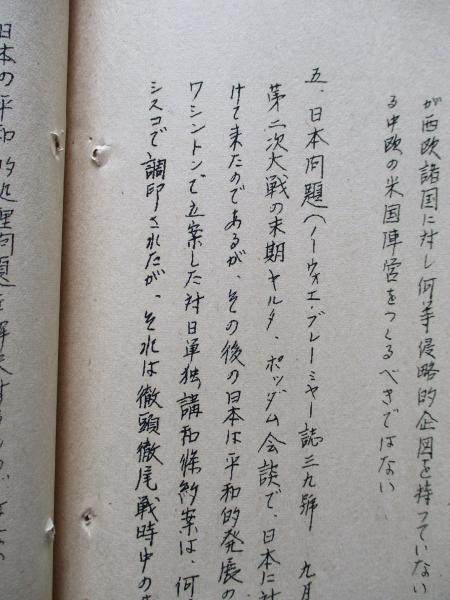 が西欧諸国に対し何等侵略的企図を持っていない
る中欧の米国陣営をつくるべきではない
五、日本問題(ノーウォエ・ブレーミャー誌三九號 九月
第二次大戦の末期ヤルタ、ポツダム会談で、日本に対
けて来たのであるが、その後の日本は平和的発展の
ワシントンで立案した対日単独講和條約案は、何
シスコで調印されたが、それは徹頭徹尾戦時中の
日本の平和的処理問題を解決する